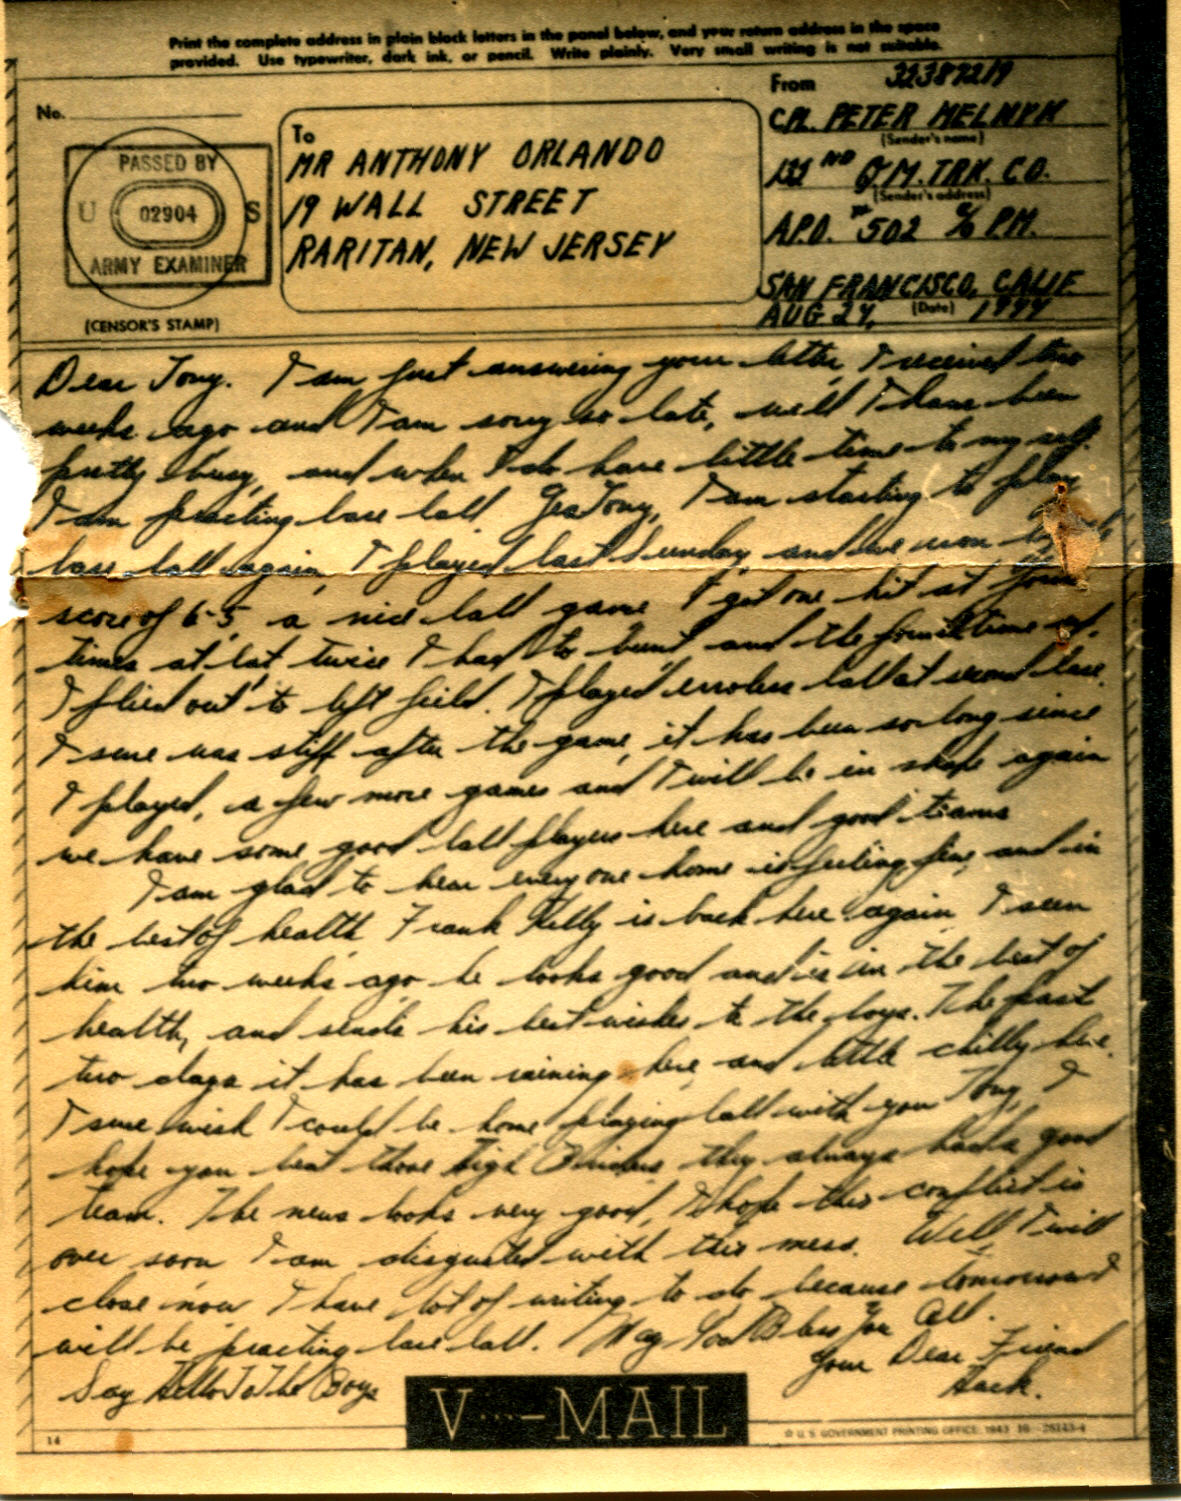 Print the complete address in plain block letters in the panel below, and your return address in the space
provided. Use typewriter, dark ink, or pencil. Write plainly. Very small writing is not suitable.
No.
PASSED BY
U 02904 S
ARMY EXAMINER
(CENSOR'S STAMP)
To
MR ANTHONY ORLANDO
19 WALL STREET
RARITAN, NEW JERSEY
From 32387219
CPL. PETER MELNYK
(Sender's name)
132 ND Q.M. TRK. CO.
(Sender's address)
A.P.O. # 502 % P.M.
SAN FRANCISCO, CALIF.
AUG 24, (Date) 1944
Dear Tony. I am just answering your letter I received two
weeks ago and I am sorry so late, well I have been
pretty busy, and when I do have little time to my self.
I am practing base ball. Gea Tony, I am starting to play
base ball again, I played last Sunday and we won by
score of 6-5 a nice ball game I got one hit at four
times at bat twice I had to bunt and the fourth time up.
I flied out to left field. I played errorless ball at second base.
I sure was stiff after the game, it has been so long since
I played, a few more games and I will be in shape again
we have some good ball players here and good teams
I am glad to hear every one home is feeling fine, and in
the best of health Frank Kelly is back here again I seen
him two weeks ago he looks good and is in the best of
health, and sends his best wishes to the boys. The past
two days it has been raining here and little chilly here.
I sure wish I could be home playing ball with you Tony, I
hope you beat those High they always had a good
team. The news looks very good, I hope this conflict is
over soon I am disgusted with this mess. Well I will
close now I have lot of writing to do because tomorrow I
will be practing base ball. May God Bless You All.
Your Dear Friend
Say Hello To The Boys
V···—MAIL
14
© U.S. GOVERNMENT PRINTING OFFICE: 1943 16—28143-4